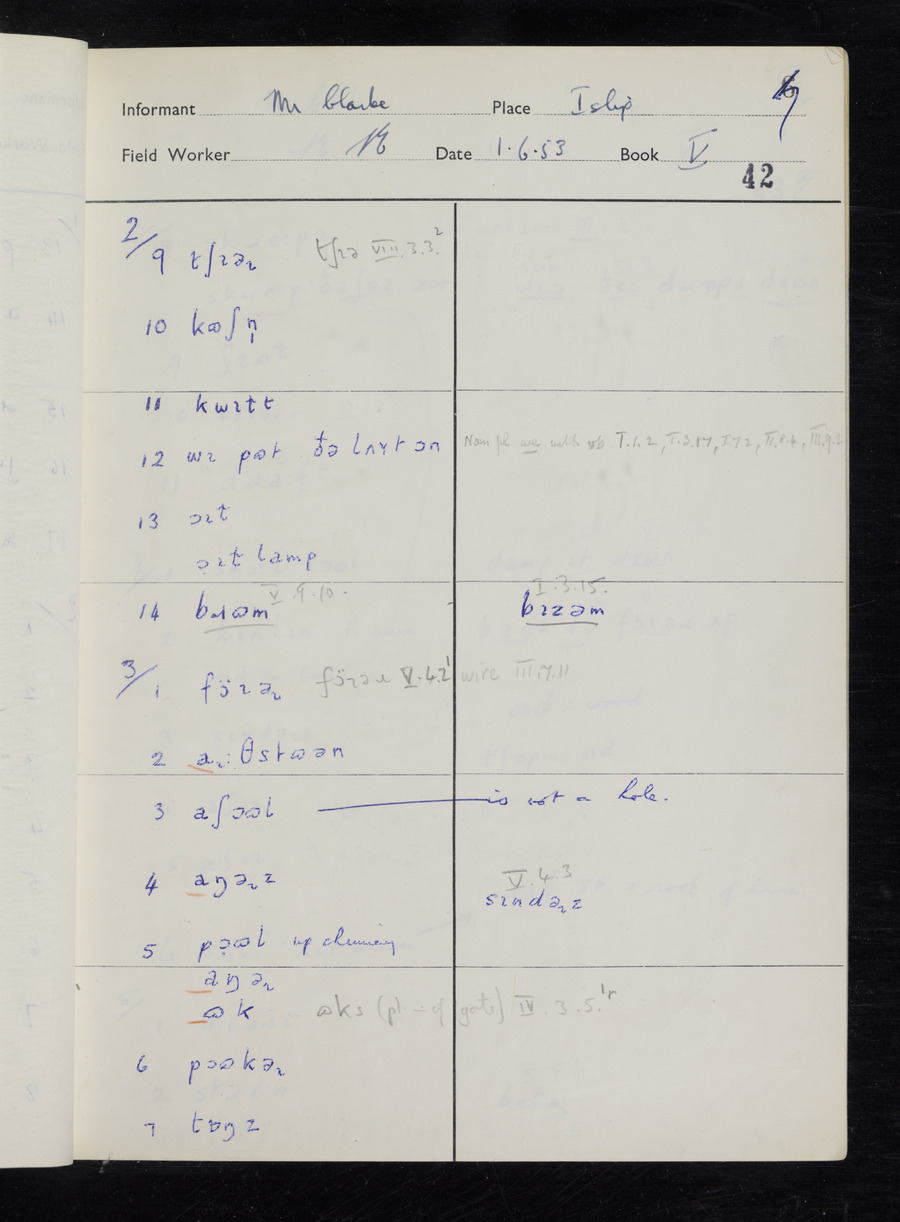 Informant Mr Clarke Place Islip
Field Worker Date 1.6.53 Book V
42
2/9 tʃɪəʳ tʃɪə VIII.3.3.²
10 kɷʃn̩
11 kwɪɫt
12 wɪ pɷt ðə lʌɪt ɔn Nom pl we with vb I.1.2, I.3.17, I.7.2, II.8.4, III.9.2
13 ɔɪɫ
ɔɪɫ lamp
14 bɹɷm V.9.10. I.3.15. bɪzəm
3/1 föɪəʳ föɪəɹ V.4.2¹ wire III.7.11
2 aʳ:θstɷən
3 aʃɔɷl — is not a hole.
4 aŋəʳz V.4.3 sɪndəʳz
5 pɔɷl up chimney
aŋəʳ
ɷk ɷks (pl – of gate) IV.3.5.¹ʳ
6 pɔɷkəʳ
7 tɒŋz